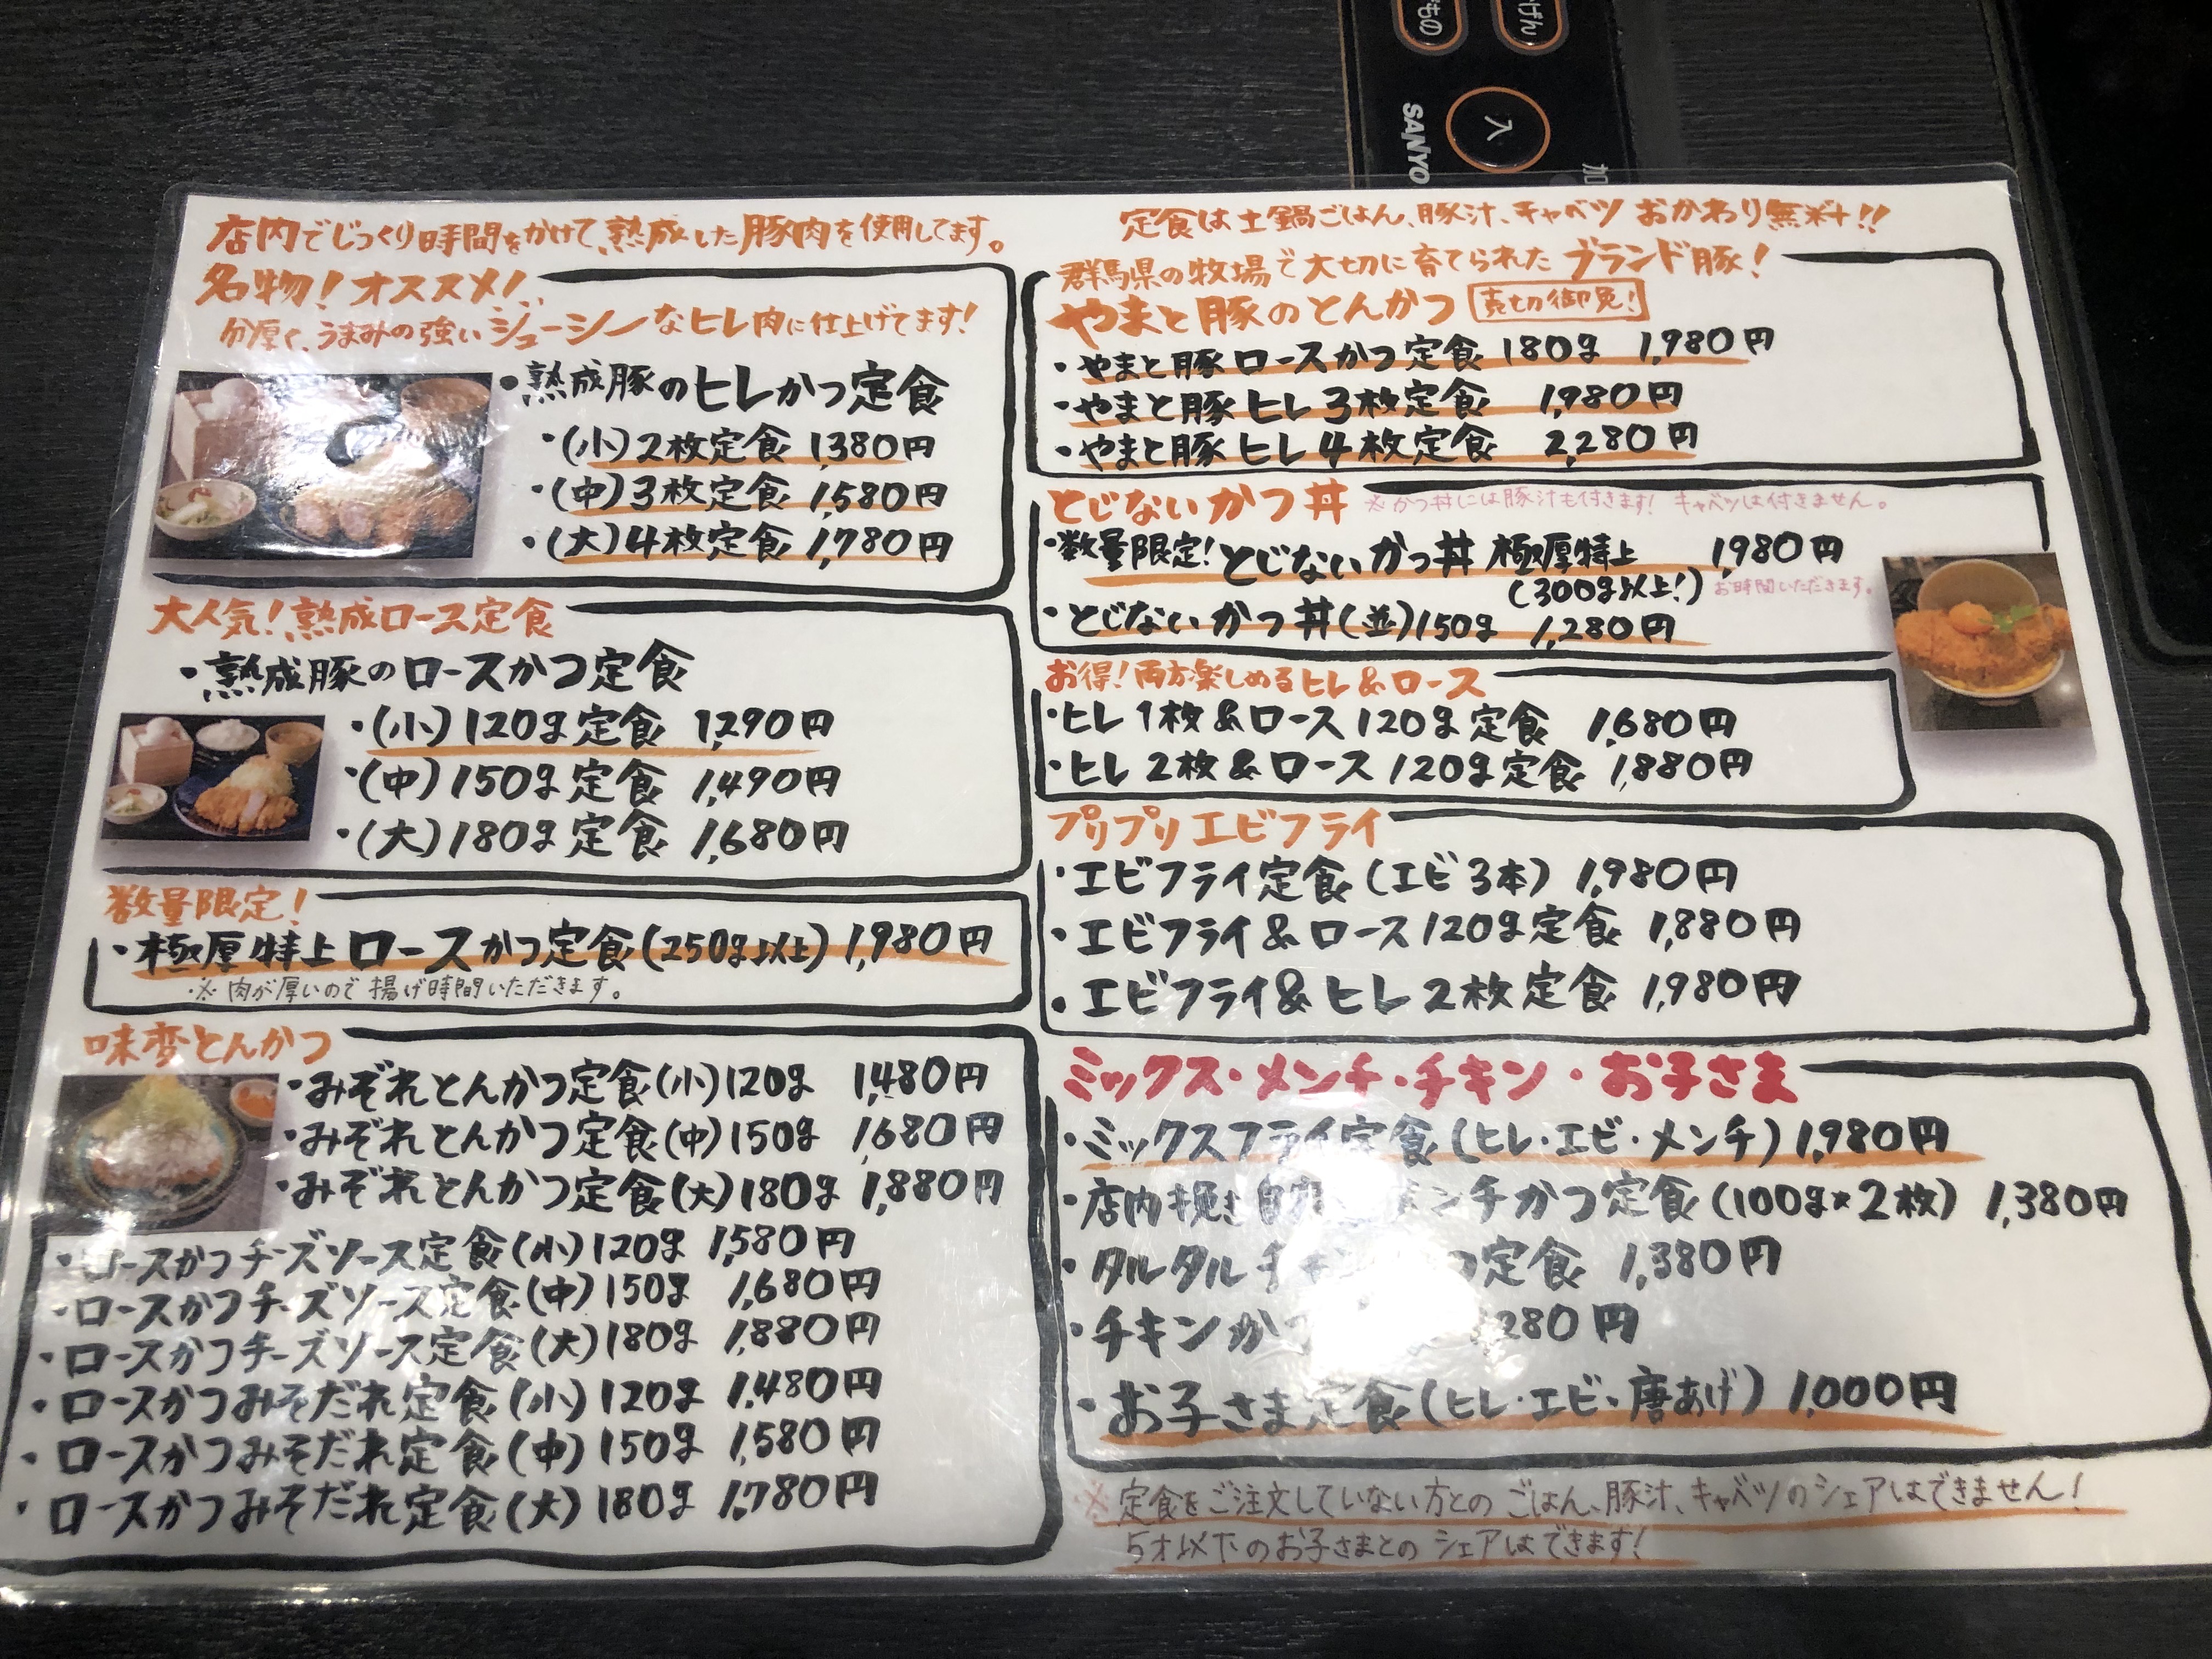 どもの
げん
入
SANYO
加
店内でじっくり時間をかけて、熟成した豚肉を使用してます。
名物！オススメ！
分厚く、うまみの強いジューシーなヒレ肉に仕上げてます！
・熟成豚のヒレかつ定食
・(小)2枚定食 1,380円
・(中)3枚定食 1,580円
・(大)4枚定食 1,780円
大人気！熟成ロース定食
・熟成豚のロースかつ定食
・(小)120g定食 1,290円
・(中)150g定食 1,490円
・(大)180g定食 1,680円
数量限定！
・極厚特上ロースかつ定食(250g以上) 1,980円
※肉が厚いので揚げ時間いただきます。
味変とんかつ
・みぞれとんかつ定食(小)120g 1,480円
・みぞれとんかつ定食(中)150g 1,680円
・みぞれとんかつ定食(大)180g 1,880円
・ロースかつチーズソース定食(小)120g 1,580円
・ロースかつチーズソース定食(中)150g 1,680円
・ロースかつチーズソース定食(大)180g 1,880円
・ロースかつみそだれ定食(小)120g 1,480円
・ロースかつみそだれ定食(中)150g 1,580円
・ロースかつみそだれ定食(大)180g 1,780円
定食は土鍋ごはん、豚汁、キャベツ おかわり無料!!
群馬県の牧場で大切に育てられたブランド豚！
やまと豚のとんかつ 売切御免！
・やまと豚ロースかつ定食 180g 1,980円
・やまと豚ヒレ3枚定食 1,980円
・やまと豚ヒレ4枚定食 2,280円
とじないかつ丼 ※かつ丼には豚汁も付きます！ キャベツは付きません。
・数量限定！とじないかつ丼 極厚特上 1,980円
(300g以上！) お時間いただきます。
・とじないかつ丼(並)150g 1,280円
お得！両方楽しめるヒレ&ロース
・ヒレ1枚&ロース120g定食 1,680円
・ヒレ2枚&ロース120g定食 1,880円
プリプリエビフライ
・エビフライ定食(エビ3本) 1,980円
・エビフライ&ロース120g定食 1,880円
・エビフライ&ヒレ2枚定食 1,980円
ミックス・メンチ・チキン・お子さま
・ミックスフライ定食(ヒレ・エビ・メンチ) 1,980円
・店内挽き メンチかつ定食(100g×2枚) 1,380円
・タルタルチキンかつ定食 1,380円
・チキンかつ 280円
・お子さま定食(ヒレ・エビ・唐あげ) 1,000円
※定食をご注文していない方とのごはん、豚汁、キャベツのシェアはできません！
5才以下のお子さまとのシェアはできます！